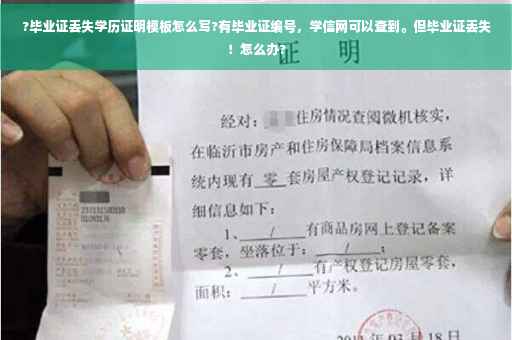 ?毕业证丢失学历证明模板怎么写?有毕业证编号，学信网可以查到。但毕业证丢失
！怎么办?
证 明
经对：住房情况查阅微机核实，
在临沂市房产和住房保障局档案信息系
统内现有 零 套房屋产权登记记录，详
细信息如下：
1、 / 有商品房网上登记备案
零套，坐落位于： / ；
2、 / 有产权登记房屋零套，
面积： / 平方米。
03月18日